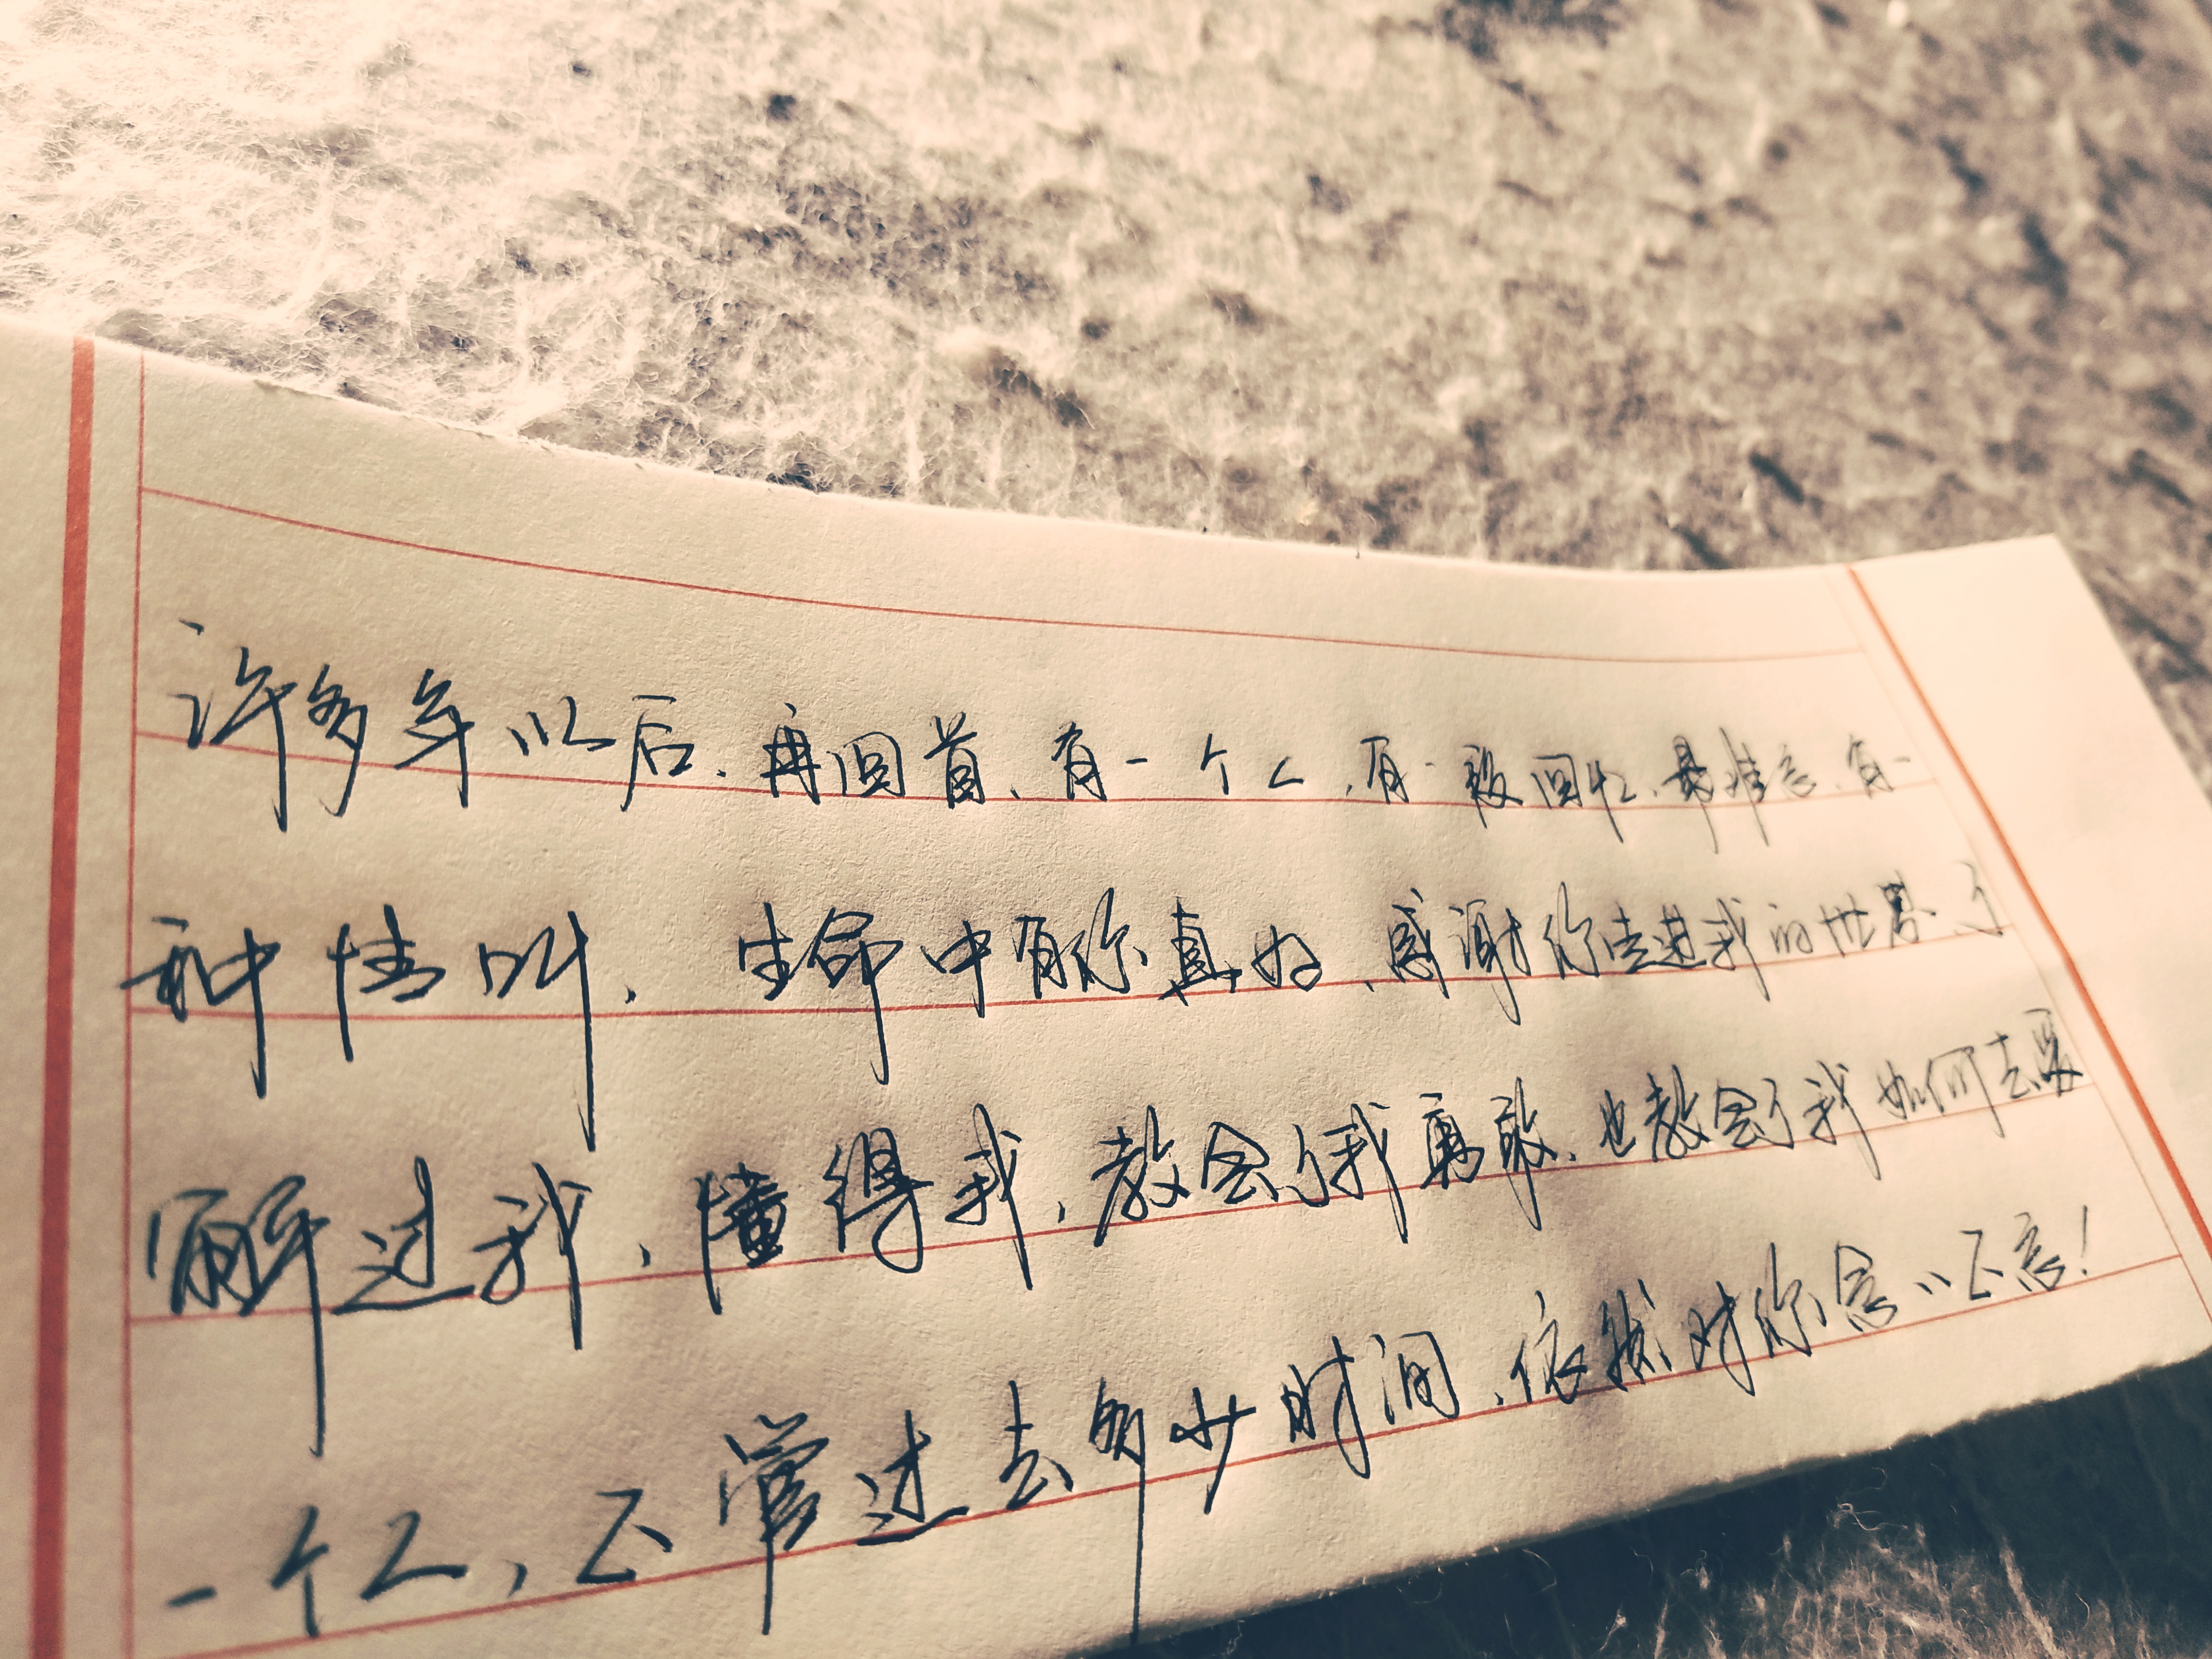 许多年以后，再回首，有一个人，有一段回忆，最难忘，有一
种情叫，生命中有你真好，感谢你走进我的世界，了
解过我，懂得我，教会了我勇敢，也教会了我如何去爱
一个人，不管过去多少时间，依然对你念念不忘！